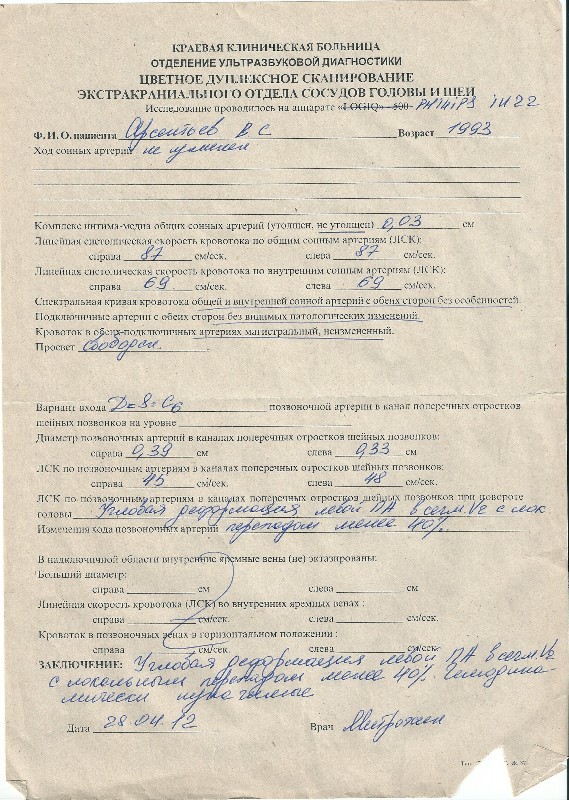 КРАЕВАЯ КЛИНИЧЕСКАЯ БОЛЬНИЦА
ОТДЕЛЕНИЕ УЛЬТРАЗВУКОВОЙ ДИАГНОСТИКИ
ЦВЕТНОЕ ДУПЛЕКСНОЕ СКАНИРОВАНИЕ
ЭКСТРАКРАНИАЛЬНОГО ОТДЕЛА СОСУДОВ ГОЛОВЫ И ШЕИ
Исследование проводилось на аппарате «LOGIQ» - 500- PHILIPS iU 22
Ф. И. О. пациента Арсентьев В С Возраст 1993
Ход сонных артерий не изменен
Комплекс интима-медиа общих сонных артерий (утолщен, не утолщен) 0,03 см
Линейная систолическая скорость кровотока по общим сонным артериям (ЛСК):
справа 87 см/сек. слева 87 см/сек.
Линейная систолическая скорость кровотока по внутренним сонным артериям (ЛСК):
справа 69 см/сек. слева 69 см/сек.
Спектральная кривая кровотока общей и внутренней сонной артерий с обеих сторон без особенностей.
Подключичные артерии с обеих сторон без видимых патологических изменений.
Кровоток в обеих подключичных артериях магистральный, неизмененный.
Просвет свободен.
Вариант входа D=S=C6 позвоночной артерии в канал поперечных отростков
шейных позвонков на уровне
Диаметр позвоночных артерий в каналах поперечных отростков шейных позвонков:
справа 0,39 см слева 0,33 см
ЛСК по позвоночным артериям в каналах поперечных отростков шейных позвонков:
справа 45 см/сек. слева 48 см/сек.
ЛСК по позвоночным артериям в каналах поперечных отростков шейных позвонков при повороте
головы Угловая деформация левой ПА в сегм. V2 с лок.
Изменения хода позвоночных артерий перепадом менее 40%.
В надключичной области внутренние яремные вены (не) эктазированы:
Больший диаметр:
справа см слева см
Линейная скорость кровотока (ЛСК) во внутренних яремных венах :
справа см/сек. слева см/сек.
Кровоток в позвоночных венах в горизонтальном положении :
справа см/сек. слева см/сек.
ЗАКЛЮЧЕНИЕ: Угловая деформация левой ПА в сегм. V2
с локальным перепадом менее 40%. Гемодина-
мически
Дата 28.04.12 Врач